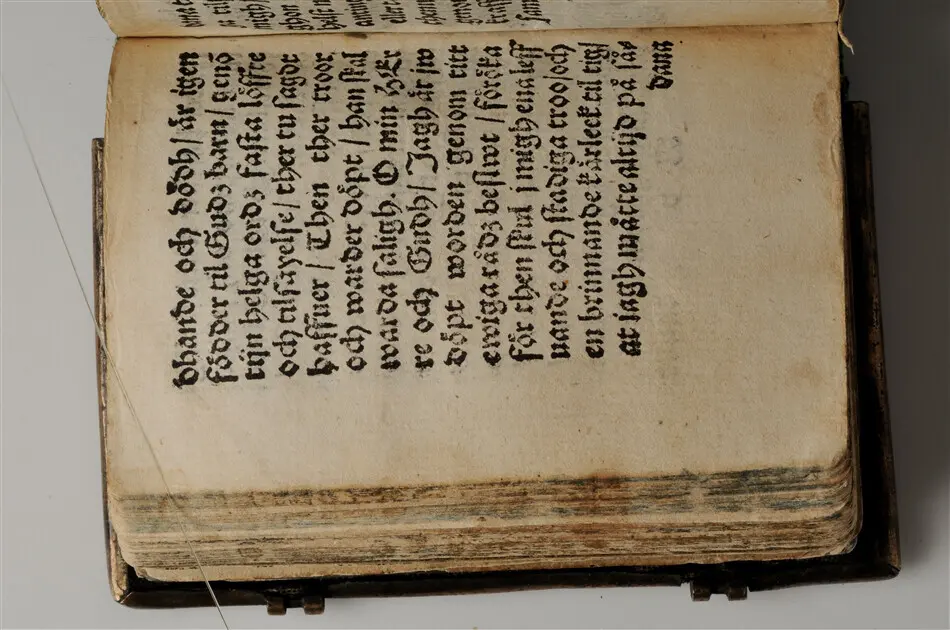 dhande och dödh/ är igen
födder til Gudz barn/ genō
tijn helga ordz fasta löffte
och tilsäyelse/ ther tu sagdt
haffuer/ Then ther troor
och warder döpt/ han skal
warda saligh. O min HEr
re och Gudh/ Jagh är jw
döpt worden genom titt
ewiga rådz beslwt/ föröka
för then skul j migh ena leff
uande och stadiga troo/och
en brinnande kärleek til tig/
at iagh måtte altijd på såa
dana